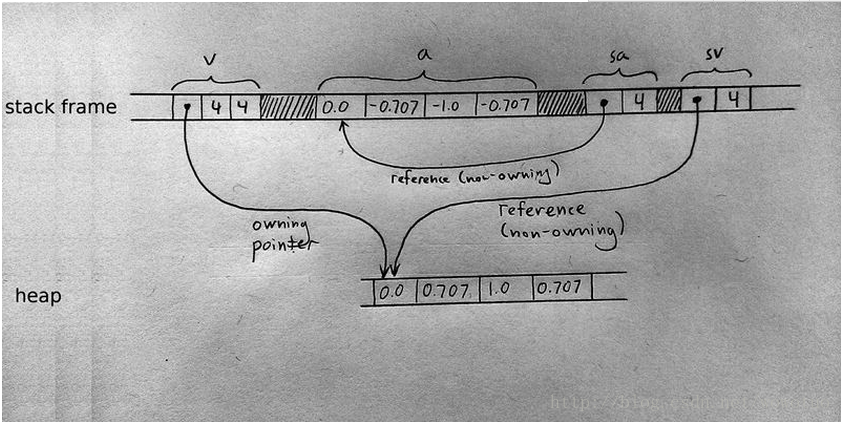 v a sa sv
stack frame 4 4 0.0 -0.707 -1.0 -0.707 4 4
reference (non-owning)
owning
pointer
reference
(non-owning)
heap 0.0 0.707 1.0 0.707